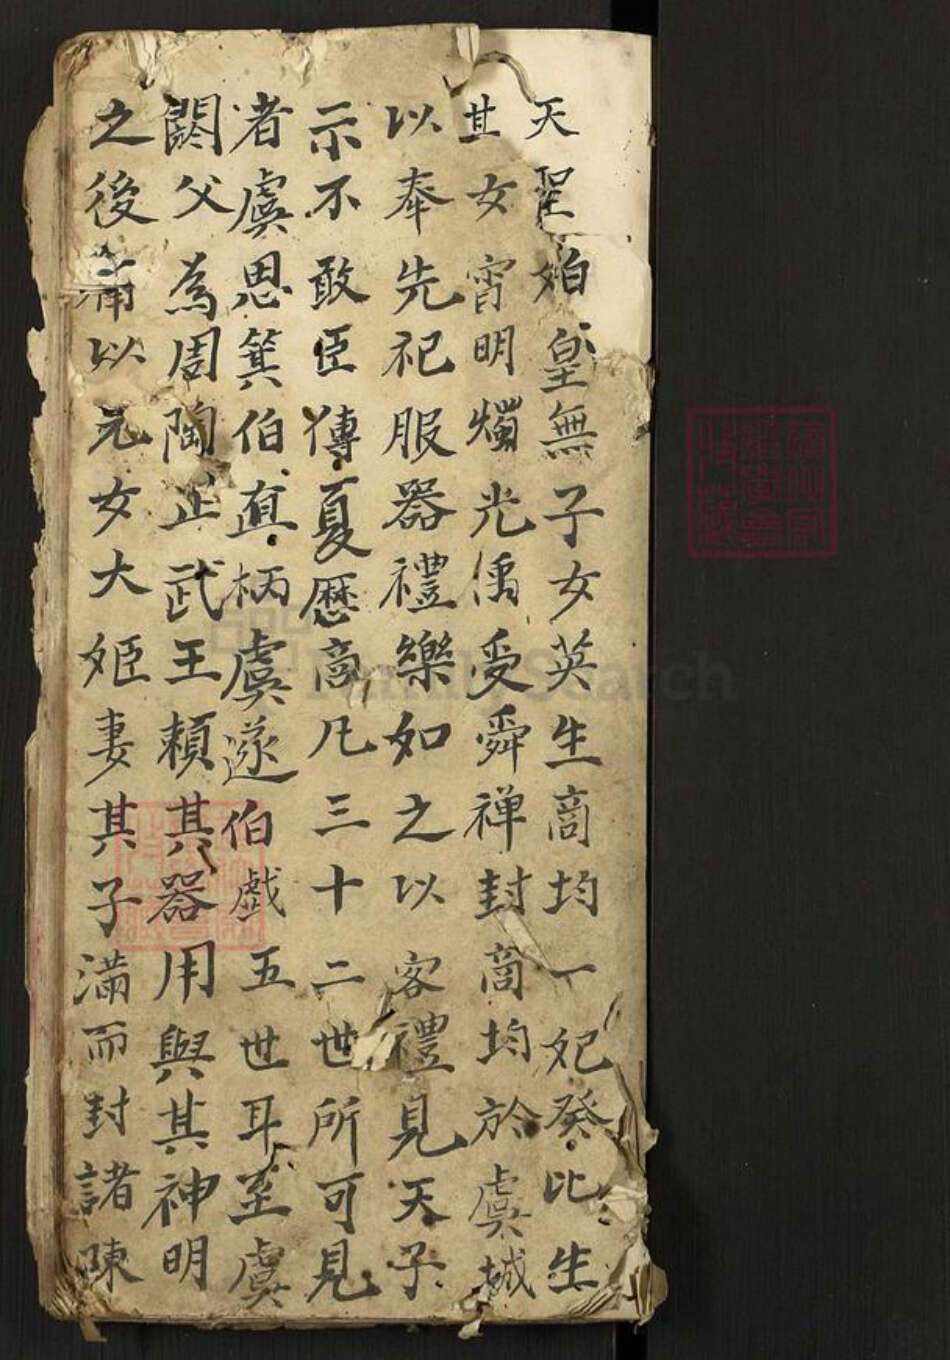 天聖始皇無子女英生商均一妃癸比生
其女宵明燭光禹受舜禅封商均於虞城
以奉先祀服器禮樂如之以客禮見天子
示不敢臣傳夏歷商凡三十二世所可見
者虞思箕伯直柄虞遂伯戲五世耳至虞
閼父為周陶正武王賴其器用與其神明
之後而以元女大姬妻其子滿而封諸陳
FamilySearch